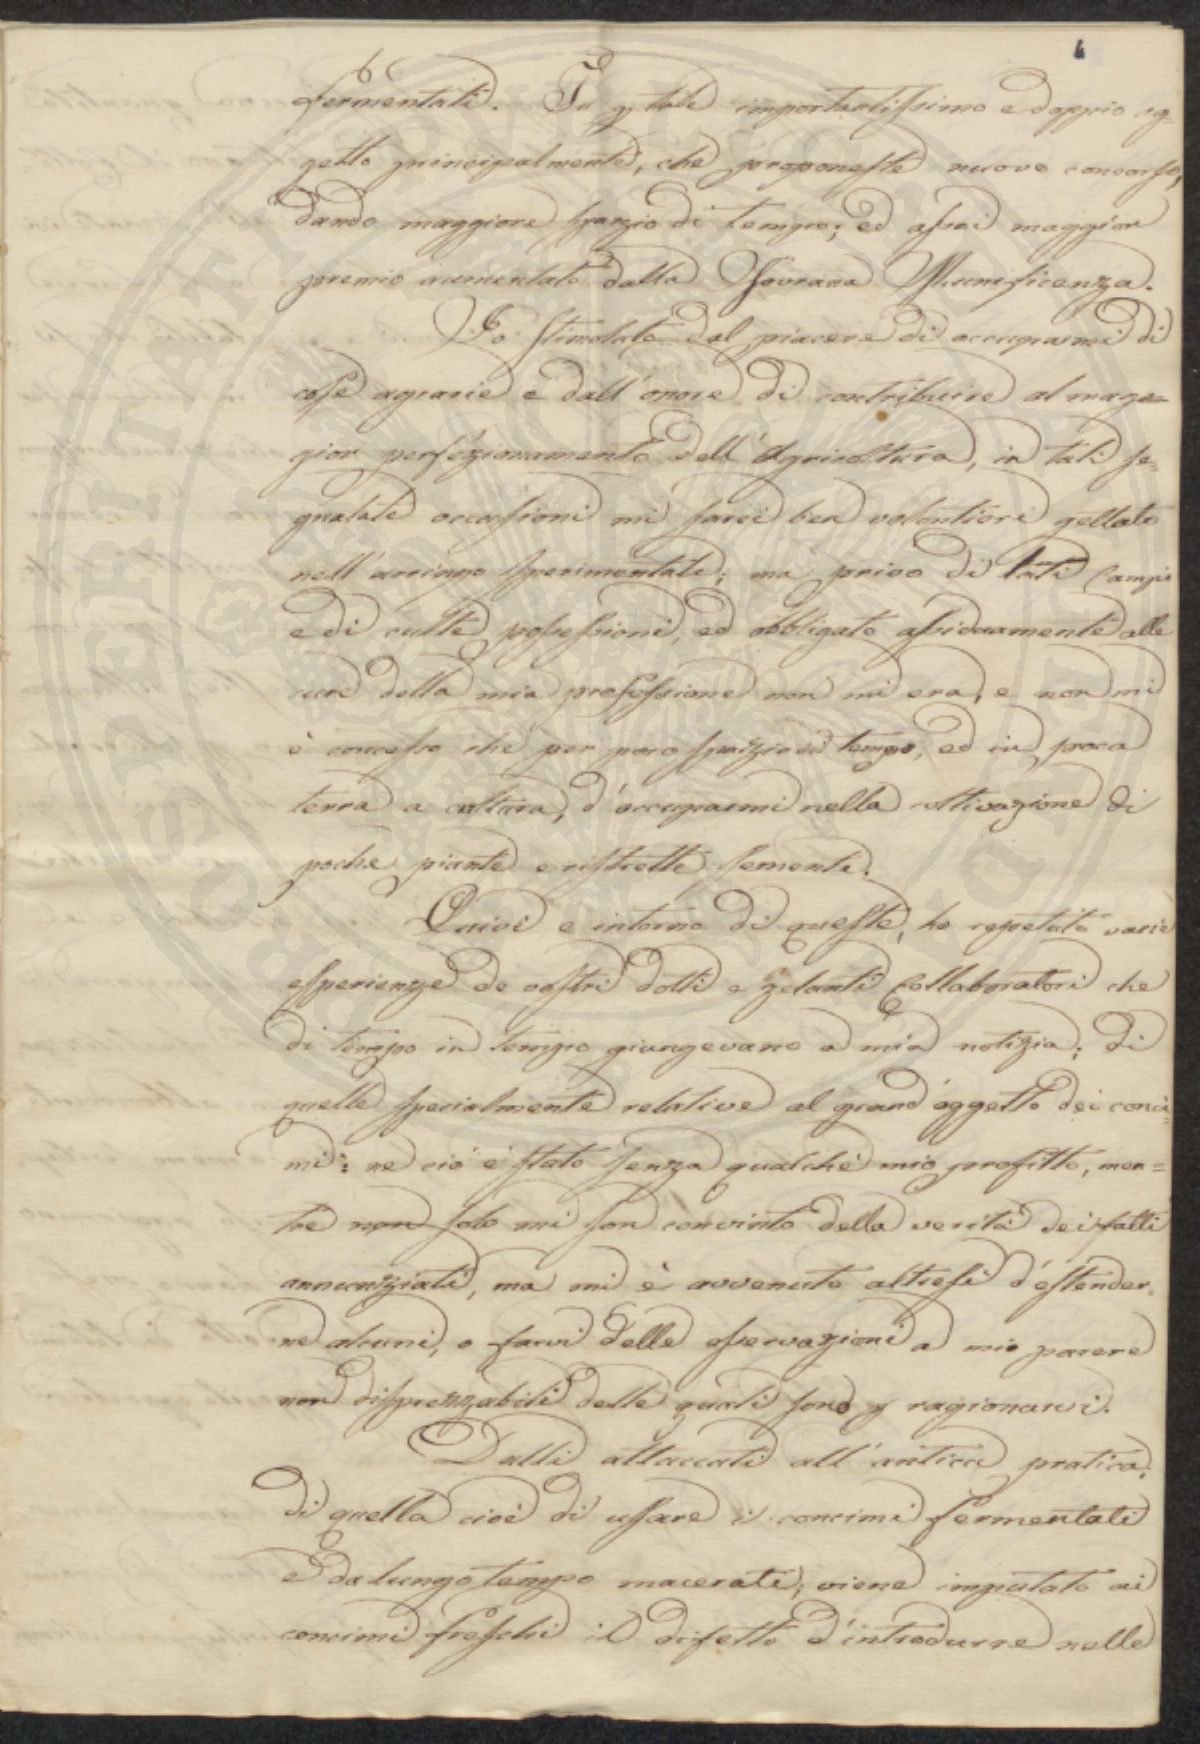 6
fermentati. Fu p tale importantissimo e doppio og-
getto principalmente, che proponeste nuovo concorso,
dando maggiore spazio di tempo; ed assai maggior
premio aumentato dalla Sovrana Munificenza.
Io stimolato dal piacere di occuparmi di
cose agrarie e dall'onore di contribuire al mag=
gior perfezionamento dell'Agricoltura, in tali se=
gnalate occasioni mi sarei ben volontieri gettato
nell'arringo sperimentale; ma privo di lati Campi
e di culte possessioni, ed obbligato assiduamente alle
cure della mia professione non mi era, e non mi
è concesso che per poco spazio di tempo, ed in poca
terra a coltura, d'occuparmi nella coltivazione di
poche piante e ristretti sementi.
Quivi e intorno di queste, ho repetute varie
esperienze de vostri dotti e zelanti Collaboratori che
di tempo in tempo giungevano a mia notizia; di
quelle specialmente relative al grand'oggetto dei conci=
mi: ne ciò è stato senza qualche mio profitto, men=
tre non solo mi son convinto della verità dei fatti
annunziati, ma mi è avvenuto altresì d'estender=
ne alcuni, o farvi delle osservazioni a mio parere
non disprezzabili delle quali sono p ragionarvi.
Dalli attaccati all'antica pratica;
di quella cioè di usare i concimi fermentati
e da lungo tempo macerati; viene imputato ai
concimi freschi il difetto d'introdurre nelle
PROSPERITATI PVBLICAE